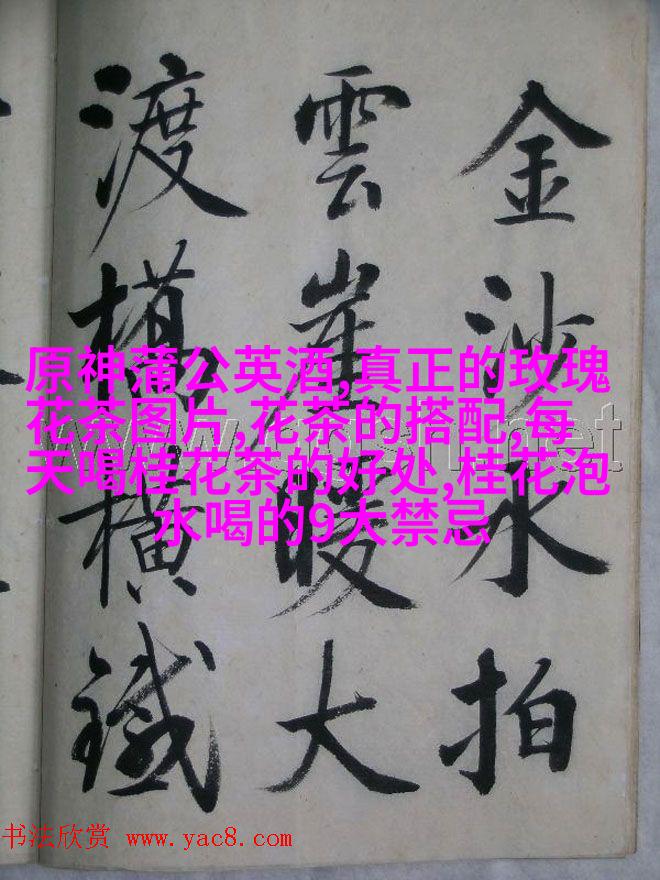 金沙水拍
雲崖暖大
渡橋横鐵
原神蒲公英酒,真正的玫瑰
花茶图片,花茶的搭配,每
天喝桂花茶的好处,桂花泡
水喝的9大禁忌
书法欣赏 www.yac8.com